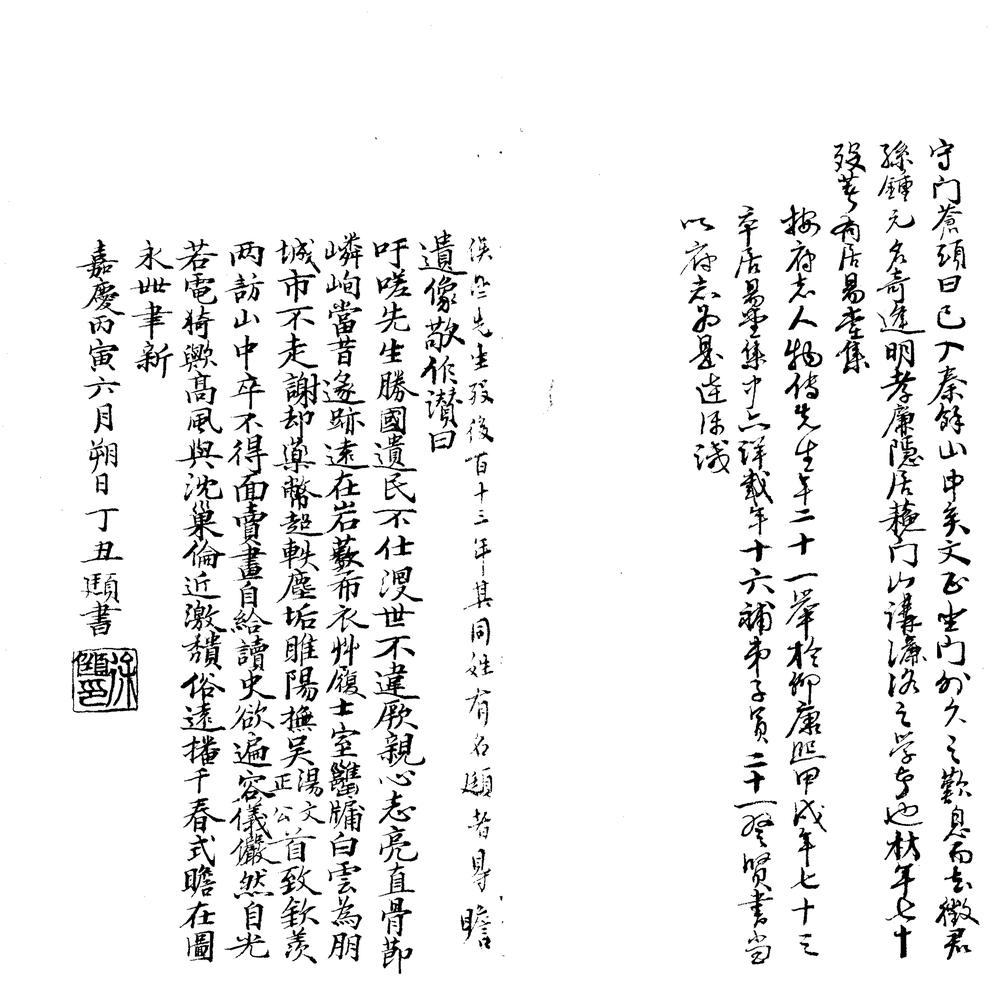 守門蒼頭曰已入秦餘山中矣文正坐門外久之歎息而去徵君
孫鍾元名奇逢明孝廉隱居蘇門山講濂洛之學者也枋年七十
歿著有居易堂集
按府志人物傳先生年二十一舉於鄉康熙甲戌年七十三
卒居易堂集中亦詳載年十六補弟子員二十一登賢書當
以府志為是達源識
俟齋先生歿後百十三年其同姓有名頲者得瞻
遺像敬作讃曰
吁嗟先生勝國遺民不仕漫世不違厥親心志亮直骨節
嶙峋當昔遂跡遠在岩藪布衣艸履土室雝牖白雲為朋
城市不走謝却藁幣超軼塵垢睢陽撫吳湯文正公首致欽羨
两訪山中卒不得面賣畫自給讀史欲遍容儀儼然自光
若電猗歟高風與沈巢倫近激頹俗遠播千春式瞻在圖
永世聿新
嘉慶丙寅六月朔日丁丑頲書
徐頲印